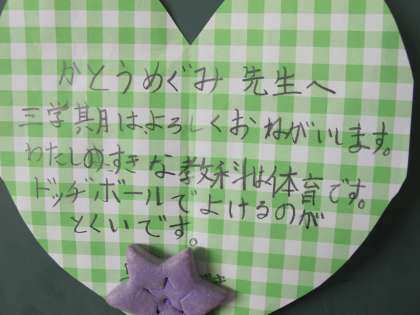 かとうめぐみ 先生へ
三学期は、よろしくおねがいします。
わたしのすきな教科は体育です。
ドッヂボールでよけるのが
とくいです。